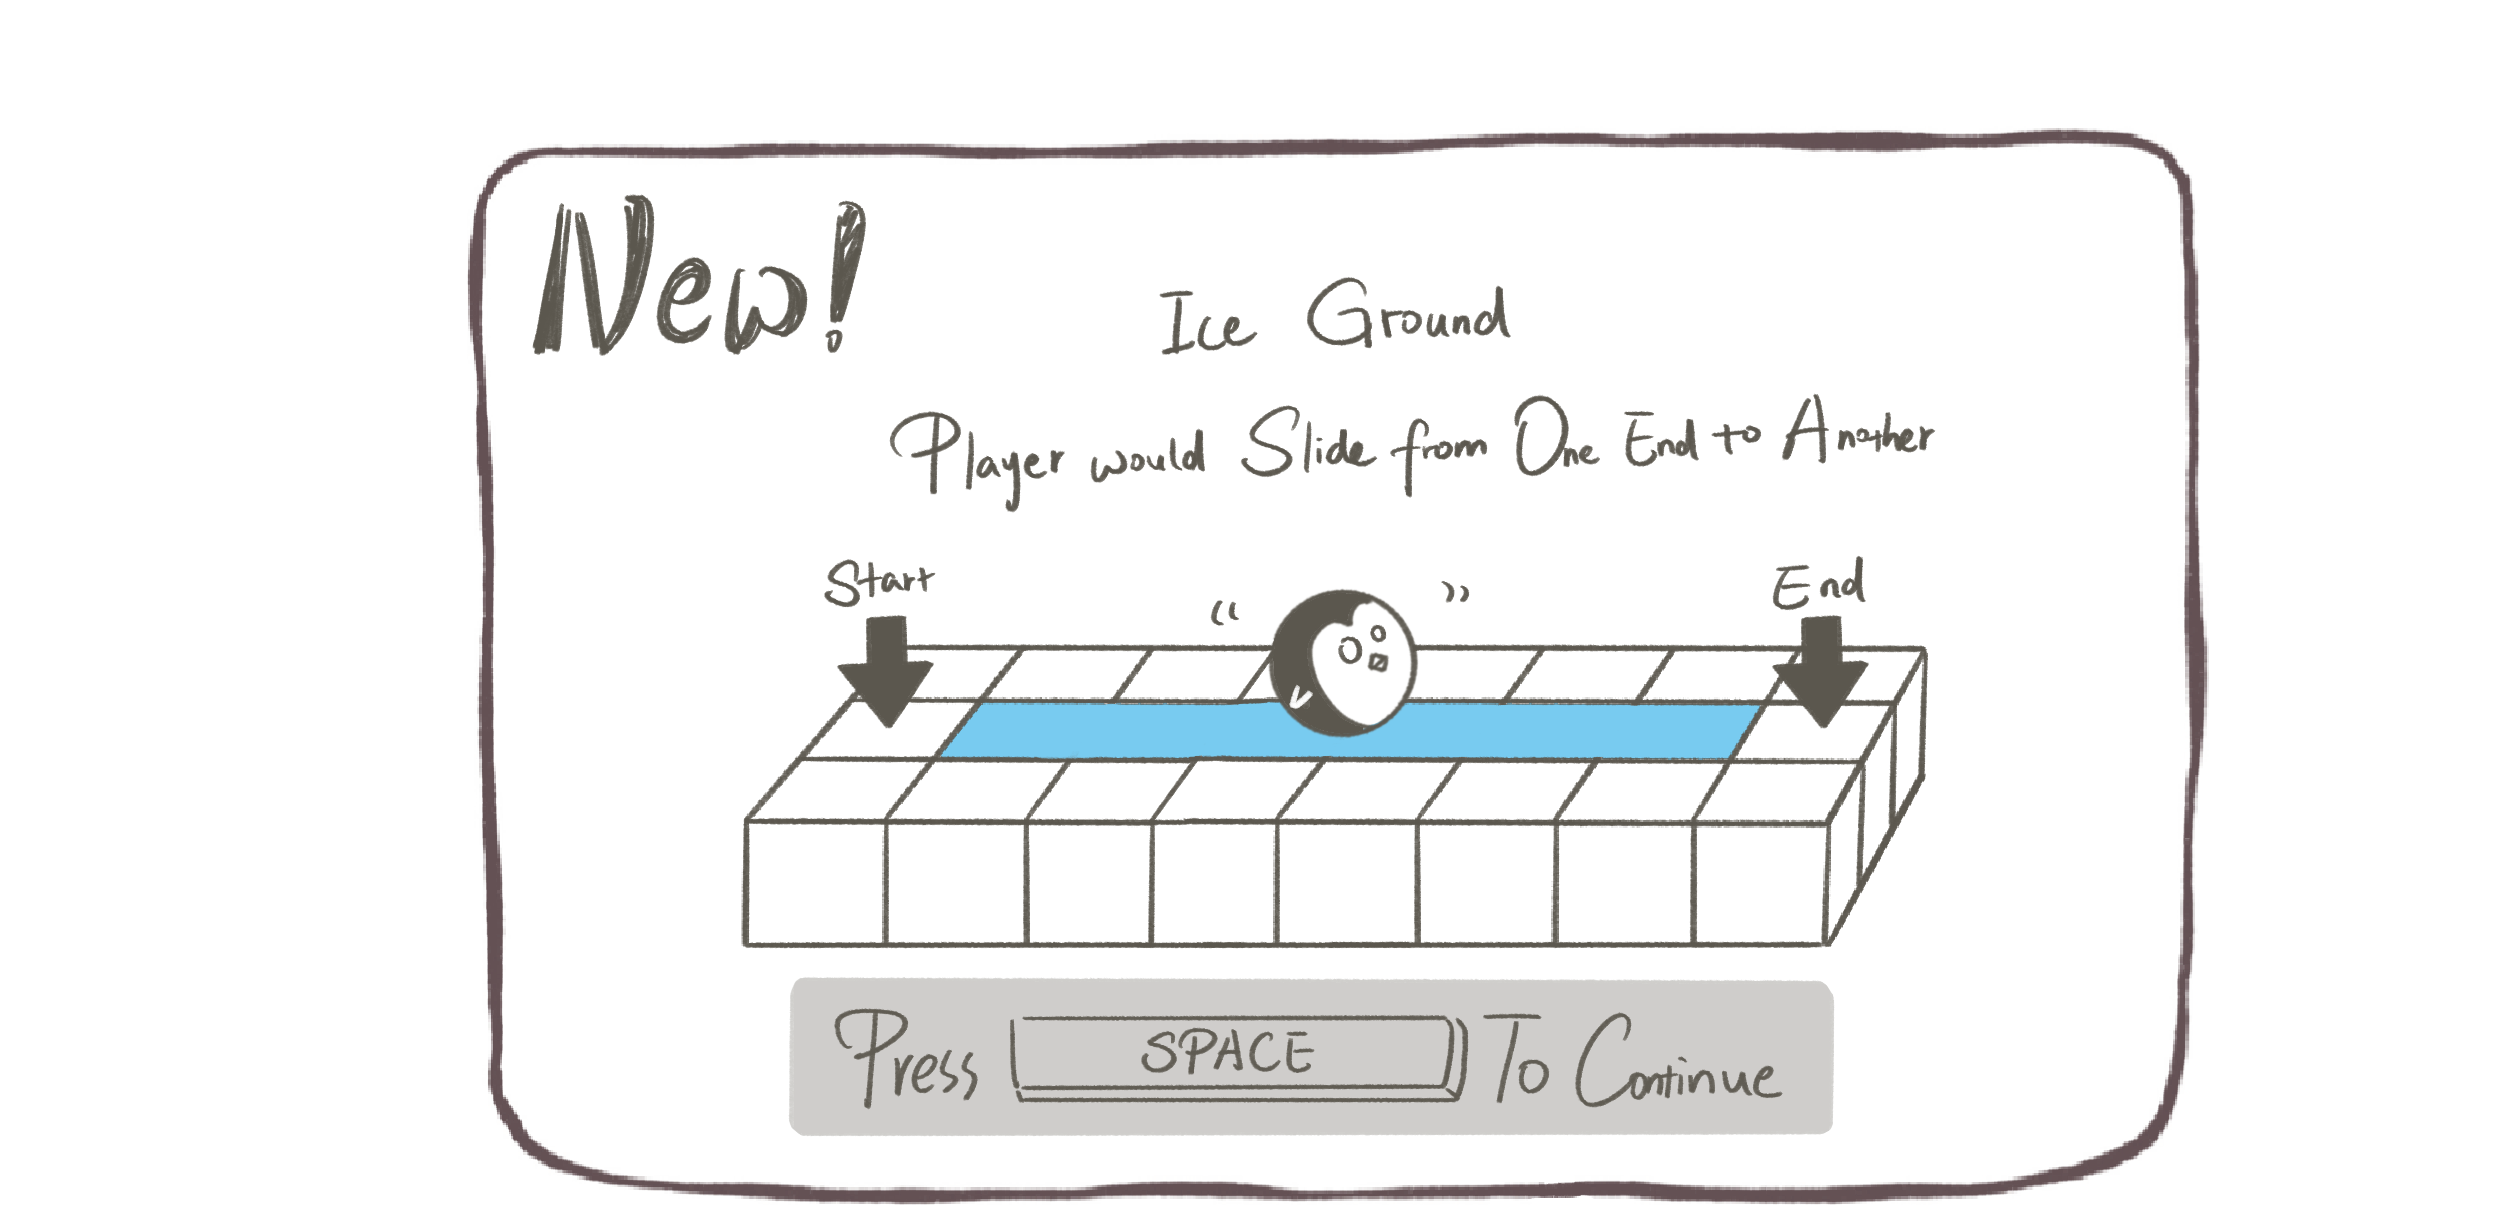 New!
Ice Ground
Player would Slide from One End to Another
Start
End
Press SPACE To Continue